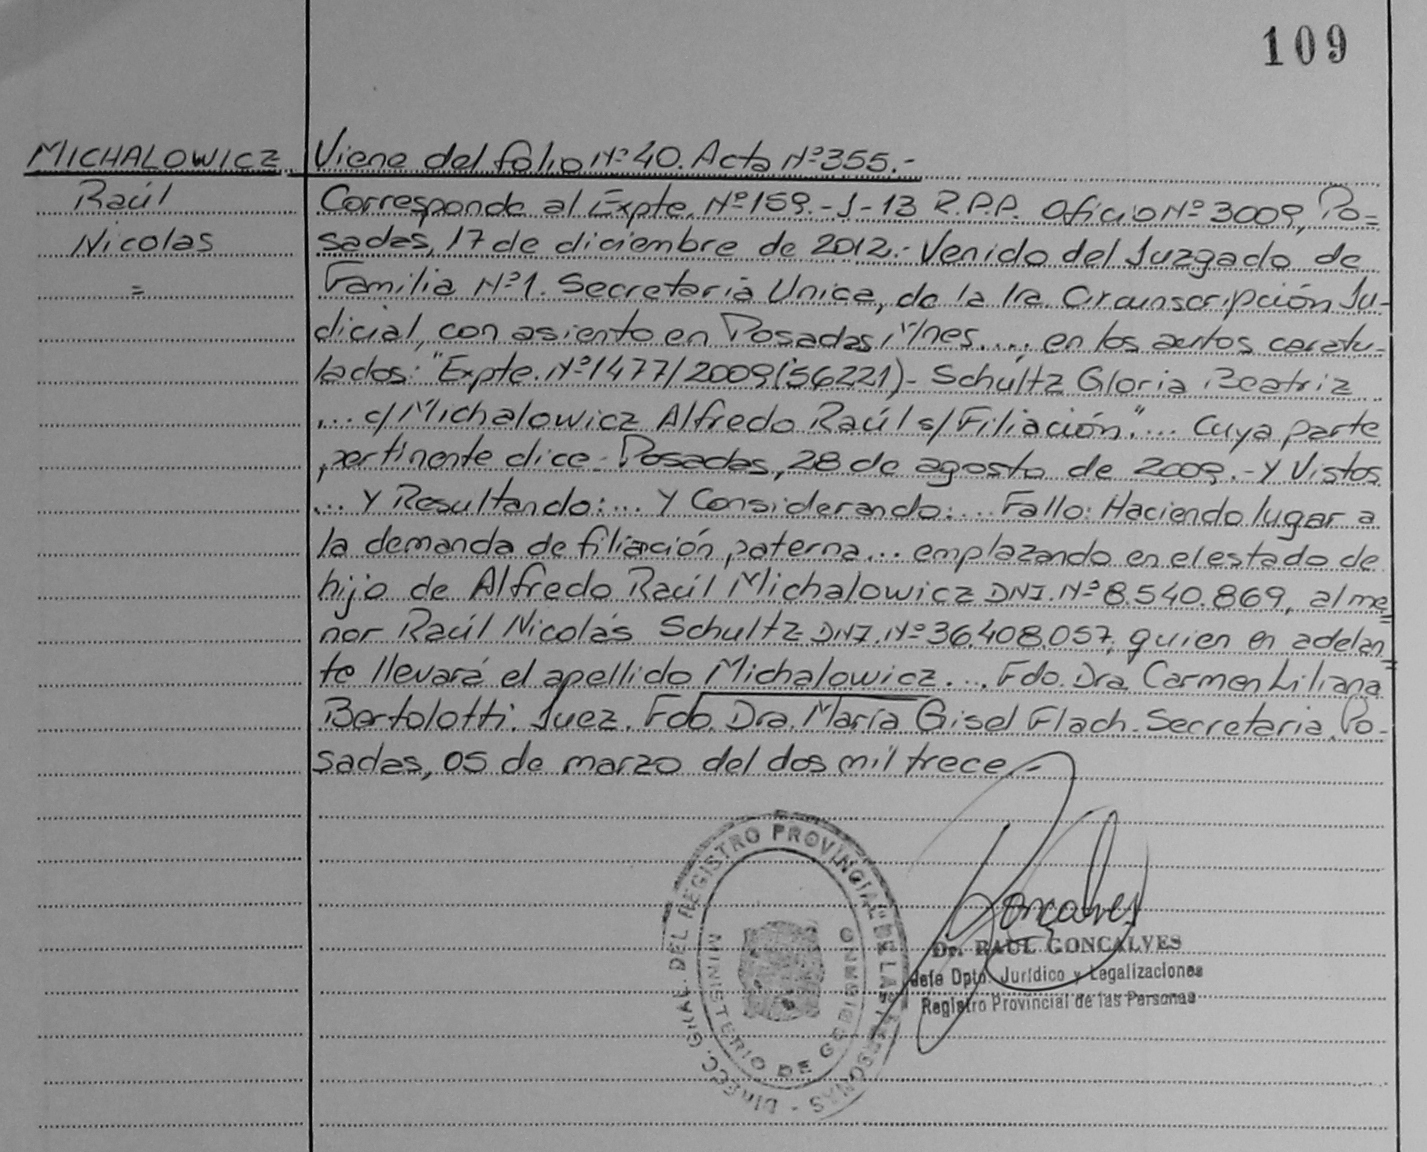 109
MICHALOWICZ
Raúl
Nicolas
=
Viene del folio Nº 40. Acta Nº 355.-
Corresponde al Expte. Nº 159.-J-13 R.P.P. Oficio Nº 3009, Po=
sadas, 17 de diciembre de 2012.- Venido del Juzgado de
Familia Nº 1. Secretaria Unica, de la 1ra. Circunscripción Ju-
dicial, con asiento en Posadas, Mnes.... en los autos caratu-
lados: "Expte. Nº 1477/2009(56221)- Schultz Gloria Beatriz
... c/ Michalowicz Alfredo Raúl s/ Filiación."... Cuya parte
pertinente dice- Posadas, 28 de agosto de 2009.- Y Vistos
... Y Resultando:... Y Considerando:... Fallo: Haciendo lugar a
la demanda de filiación paterna... emplazando en el estado de
hijo de Alfredo Raúl Michalowicz DNI. Nº 8.540.869, al me=
nor Raúl Nicolás Schultz DNI. Nº 36.408.057, quien en adelan=
te llevará el apellido Michalowicz.... Fdo. Dra. Carmen Liliana
Bertolotti. Juez. Fdo. Dra. María Gisel Flach. Secretaria. Po-
sadas, 05 de marzo del dos mil trece.-
DIRECC. GRAL. DEL REGISTRO PROVINCIAL DE LAS PERSONAS -
MINISTERIO DE GOBIERNO
Goncalves
Dr. RAUL GONCALVES
Jefe Dpto. Jurídico y Legalizaciones
Registro Provincial de las Personas